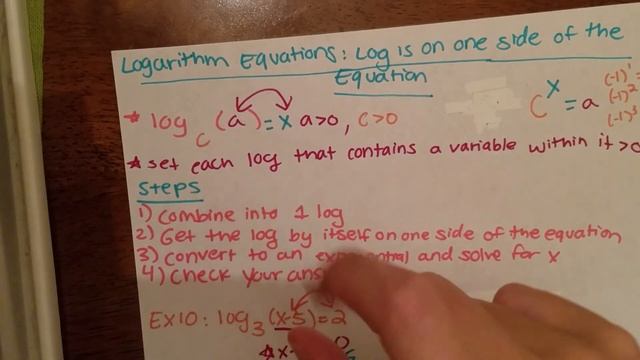 Logarithm Equations: Log is on one side of the
Equation
* log_c (a) = x a>0, c>0
c^x = a
(-1)^1
(-1)^2
(-1)^3
* set each log that contains a variable within it >0
Steps
1) Combine into 1 log
2) Get the log by itself on one side of the equation
3) Convert to an and solve for x
4) Check your
EX10: log_3 (x-5) = 2